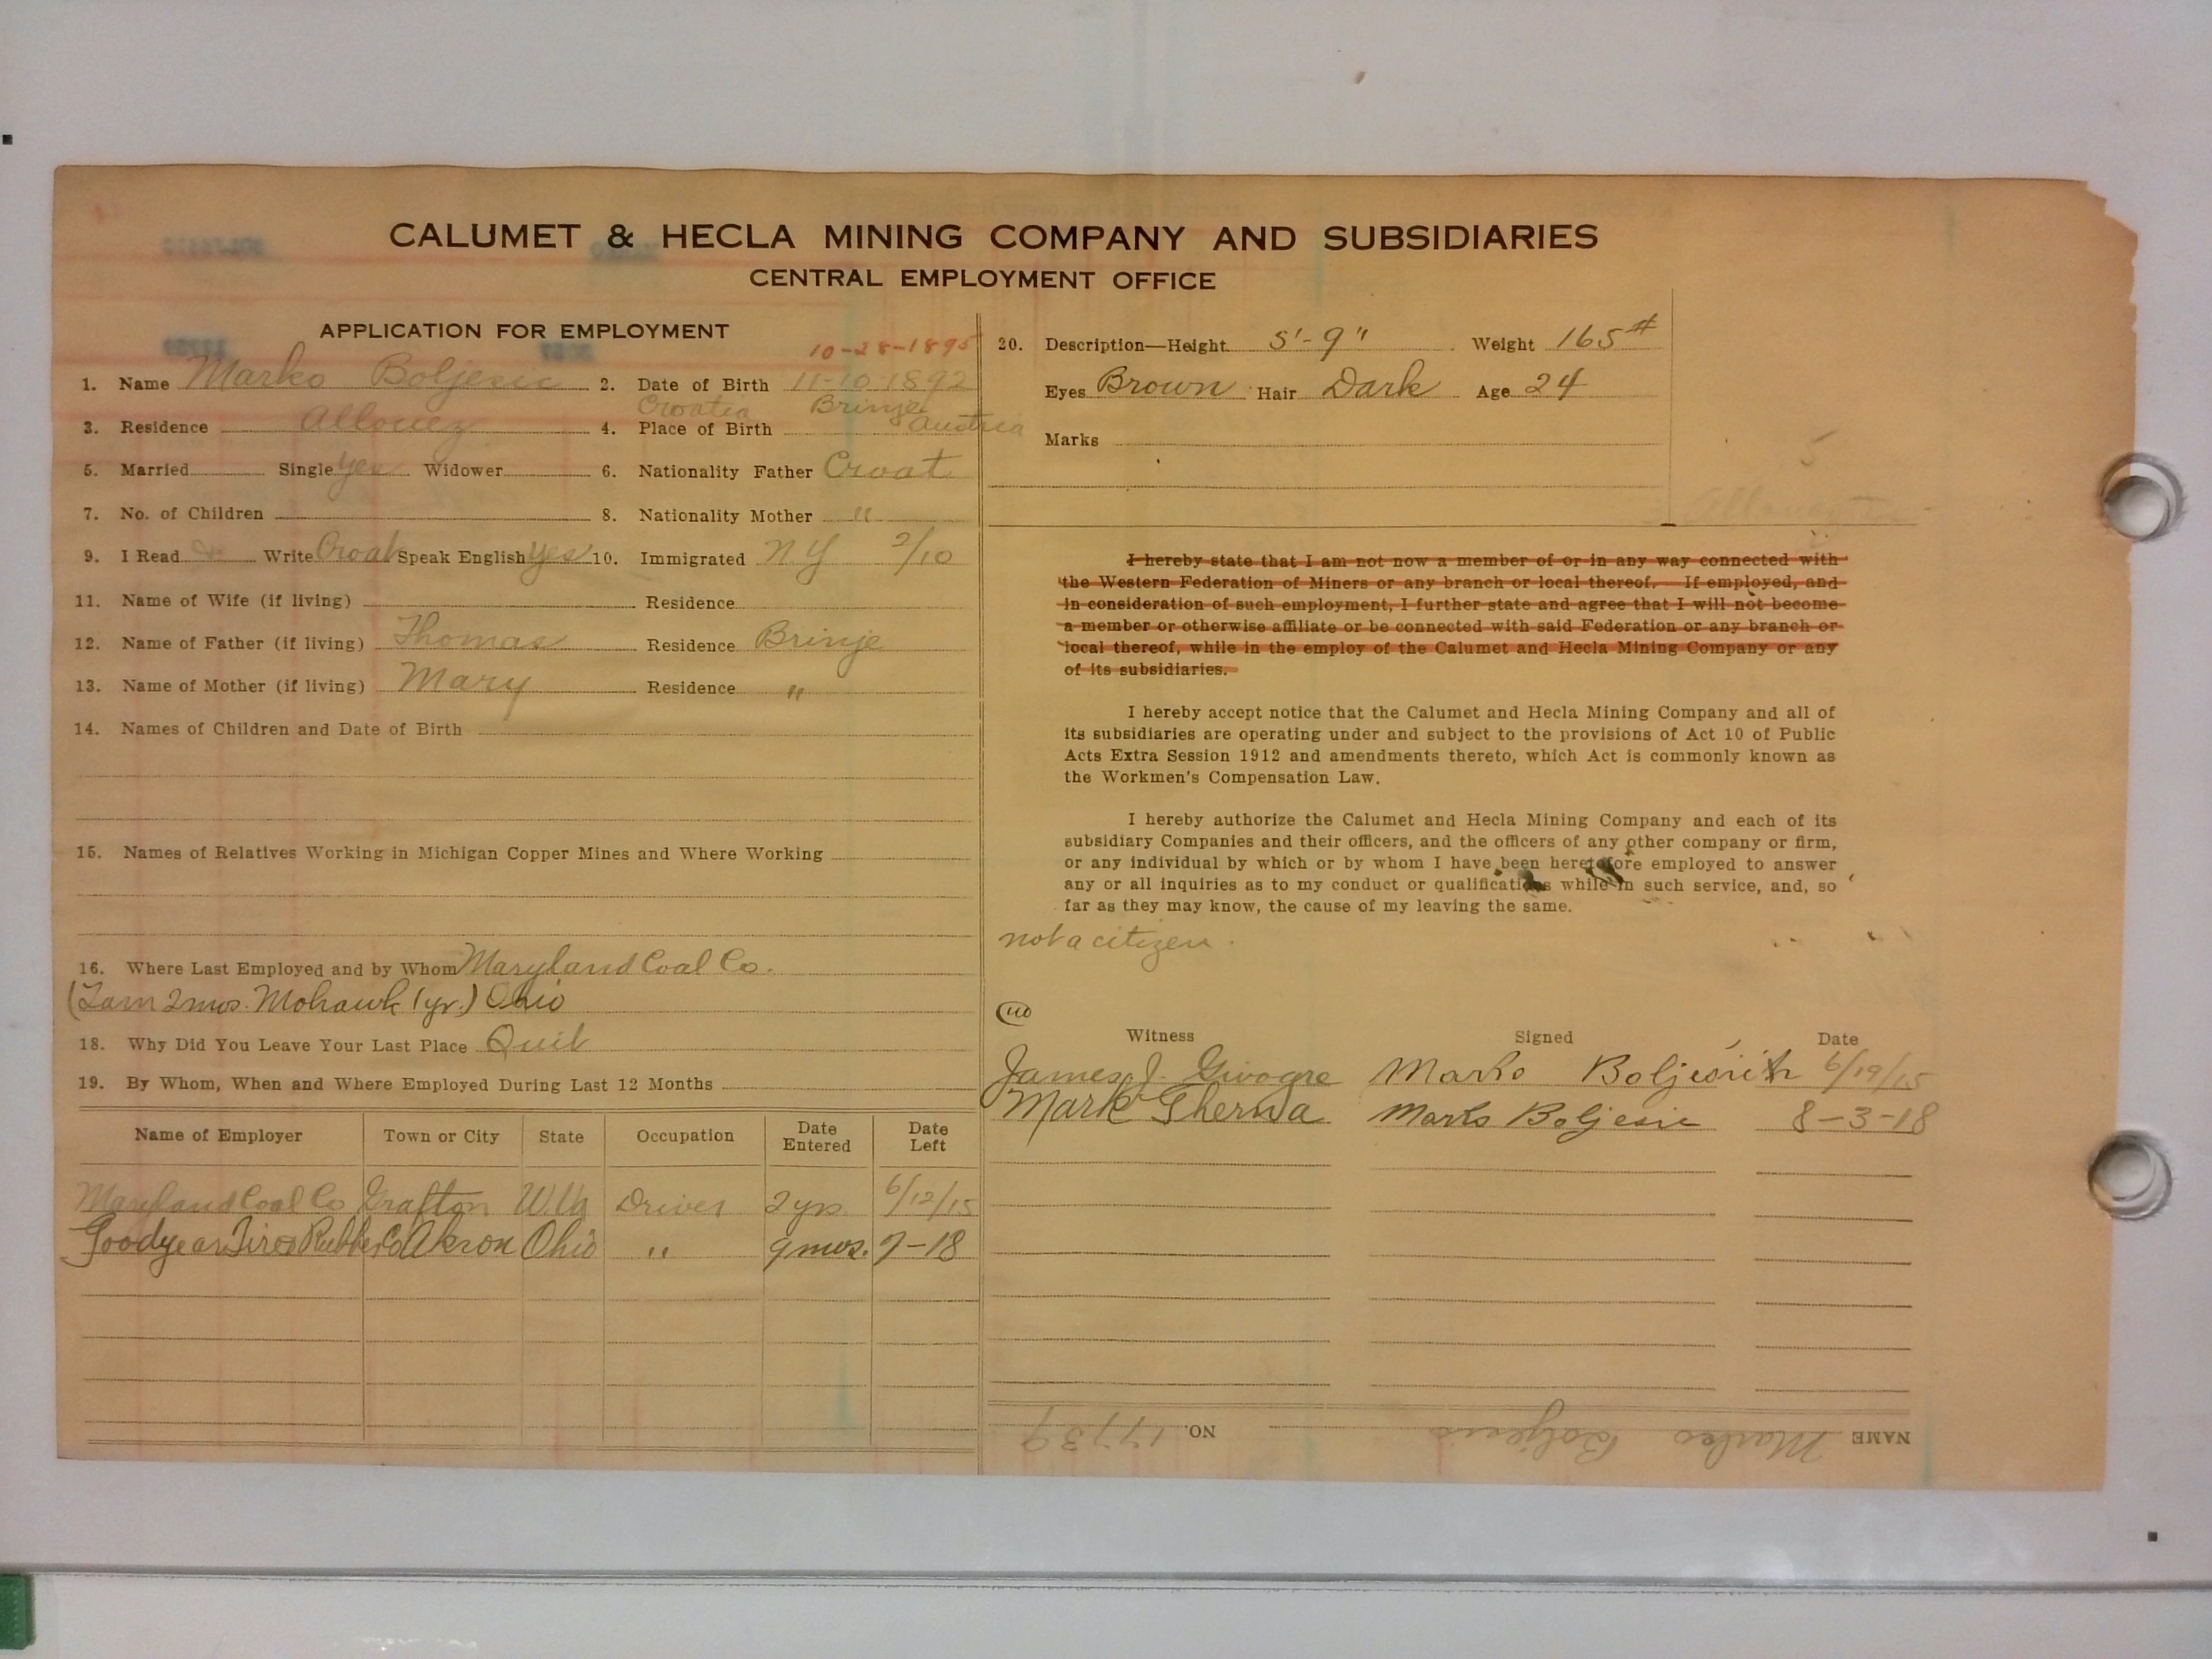 CALUMET & HECLA MINING COMPANY AND SUBSIDIARIES
CENTRAL EMPLOYMENT OFFICE
APPLICATION FOR EMPLOYMENT
10-28-1895
1. Name Marko Boljesic 2. Date of Birth 11-10-1892
Croatia Brinje
3. Residence Allouez 4. Place of Birth Austria
5. Married Single yes Widower 6. Nationality Father Croat
7. No. of Children 8. Nationality Mother "
9. I Read & Write Croat Speak English yes 10. Immigrated N Y 2/10
11. Name of Wife (if living) Residence
12. Name of Father (if living) Thomas Residence Brinje
13. Name of Mother (if living) Mary Residence "
14. Names of Children and Date of Birth
15. Names of Relatives Working in Michigan Copper Mines and Where Working
16. Where Last Employed and by Whom Maryland Coal Co.
2mos. Mohawk 1yr.) Ohio
18. Why Did You Leave Your Last Place Quit
19. By Whom, When and Where Employed During Last 12 Months
Name of Employer Town or City State Occupation Date Entered Date Left
Maryland Coal Co Grafton W.Va Driver 2 yrs. 6/12/15
Goodyear Tire & Rubber Co Akron Ohio " 9 mos. 7-18
20. Description—Height 5'-9" Weight 165#
Eyes Brown Hair Dark Age 24
Marks
5
I hereby state that I am not now a member of or in any way connected with
the Western Federation of Miners or any branch or local thereof. If employed, and
in consideration of such employment, I further state and agree that I will not become
a member or otherwise affiliate or be connected with said Federation or any branch or
local thereof, while in the employ of the Calumet and Hecla Mining Company or any
of its subsidiaries.
I hereby accept notice that the Calumet and Hecla Mining Company and all of
its subsidiaries are operating under and subject to the provisions of Act 10 of Public
Acts Extra Session 1912 and amendments thereto, which Act is commonly known as
the Workmen's Compensation Law.
I hereby authorize the Calumet and Hecla Mining Company and each of its
subsidiary Companies and their officers, and the officers of any other company or firm,
or any individual by which or by whom I have been heretofore employed to answer
any or all inquiries as to my conduct or qualifications while in such service, and, so
far as they may know, the cause of my leaving the same.
not a citizen.
Witness Signed Date
James J. Marko 6/19/15
Mark Gherna Marko Boljesic 8-3-18
NAME Marko Boljesic NO. 17739